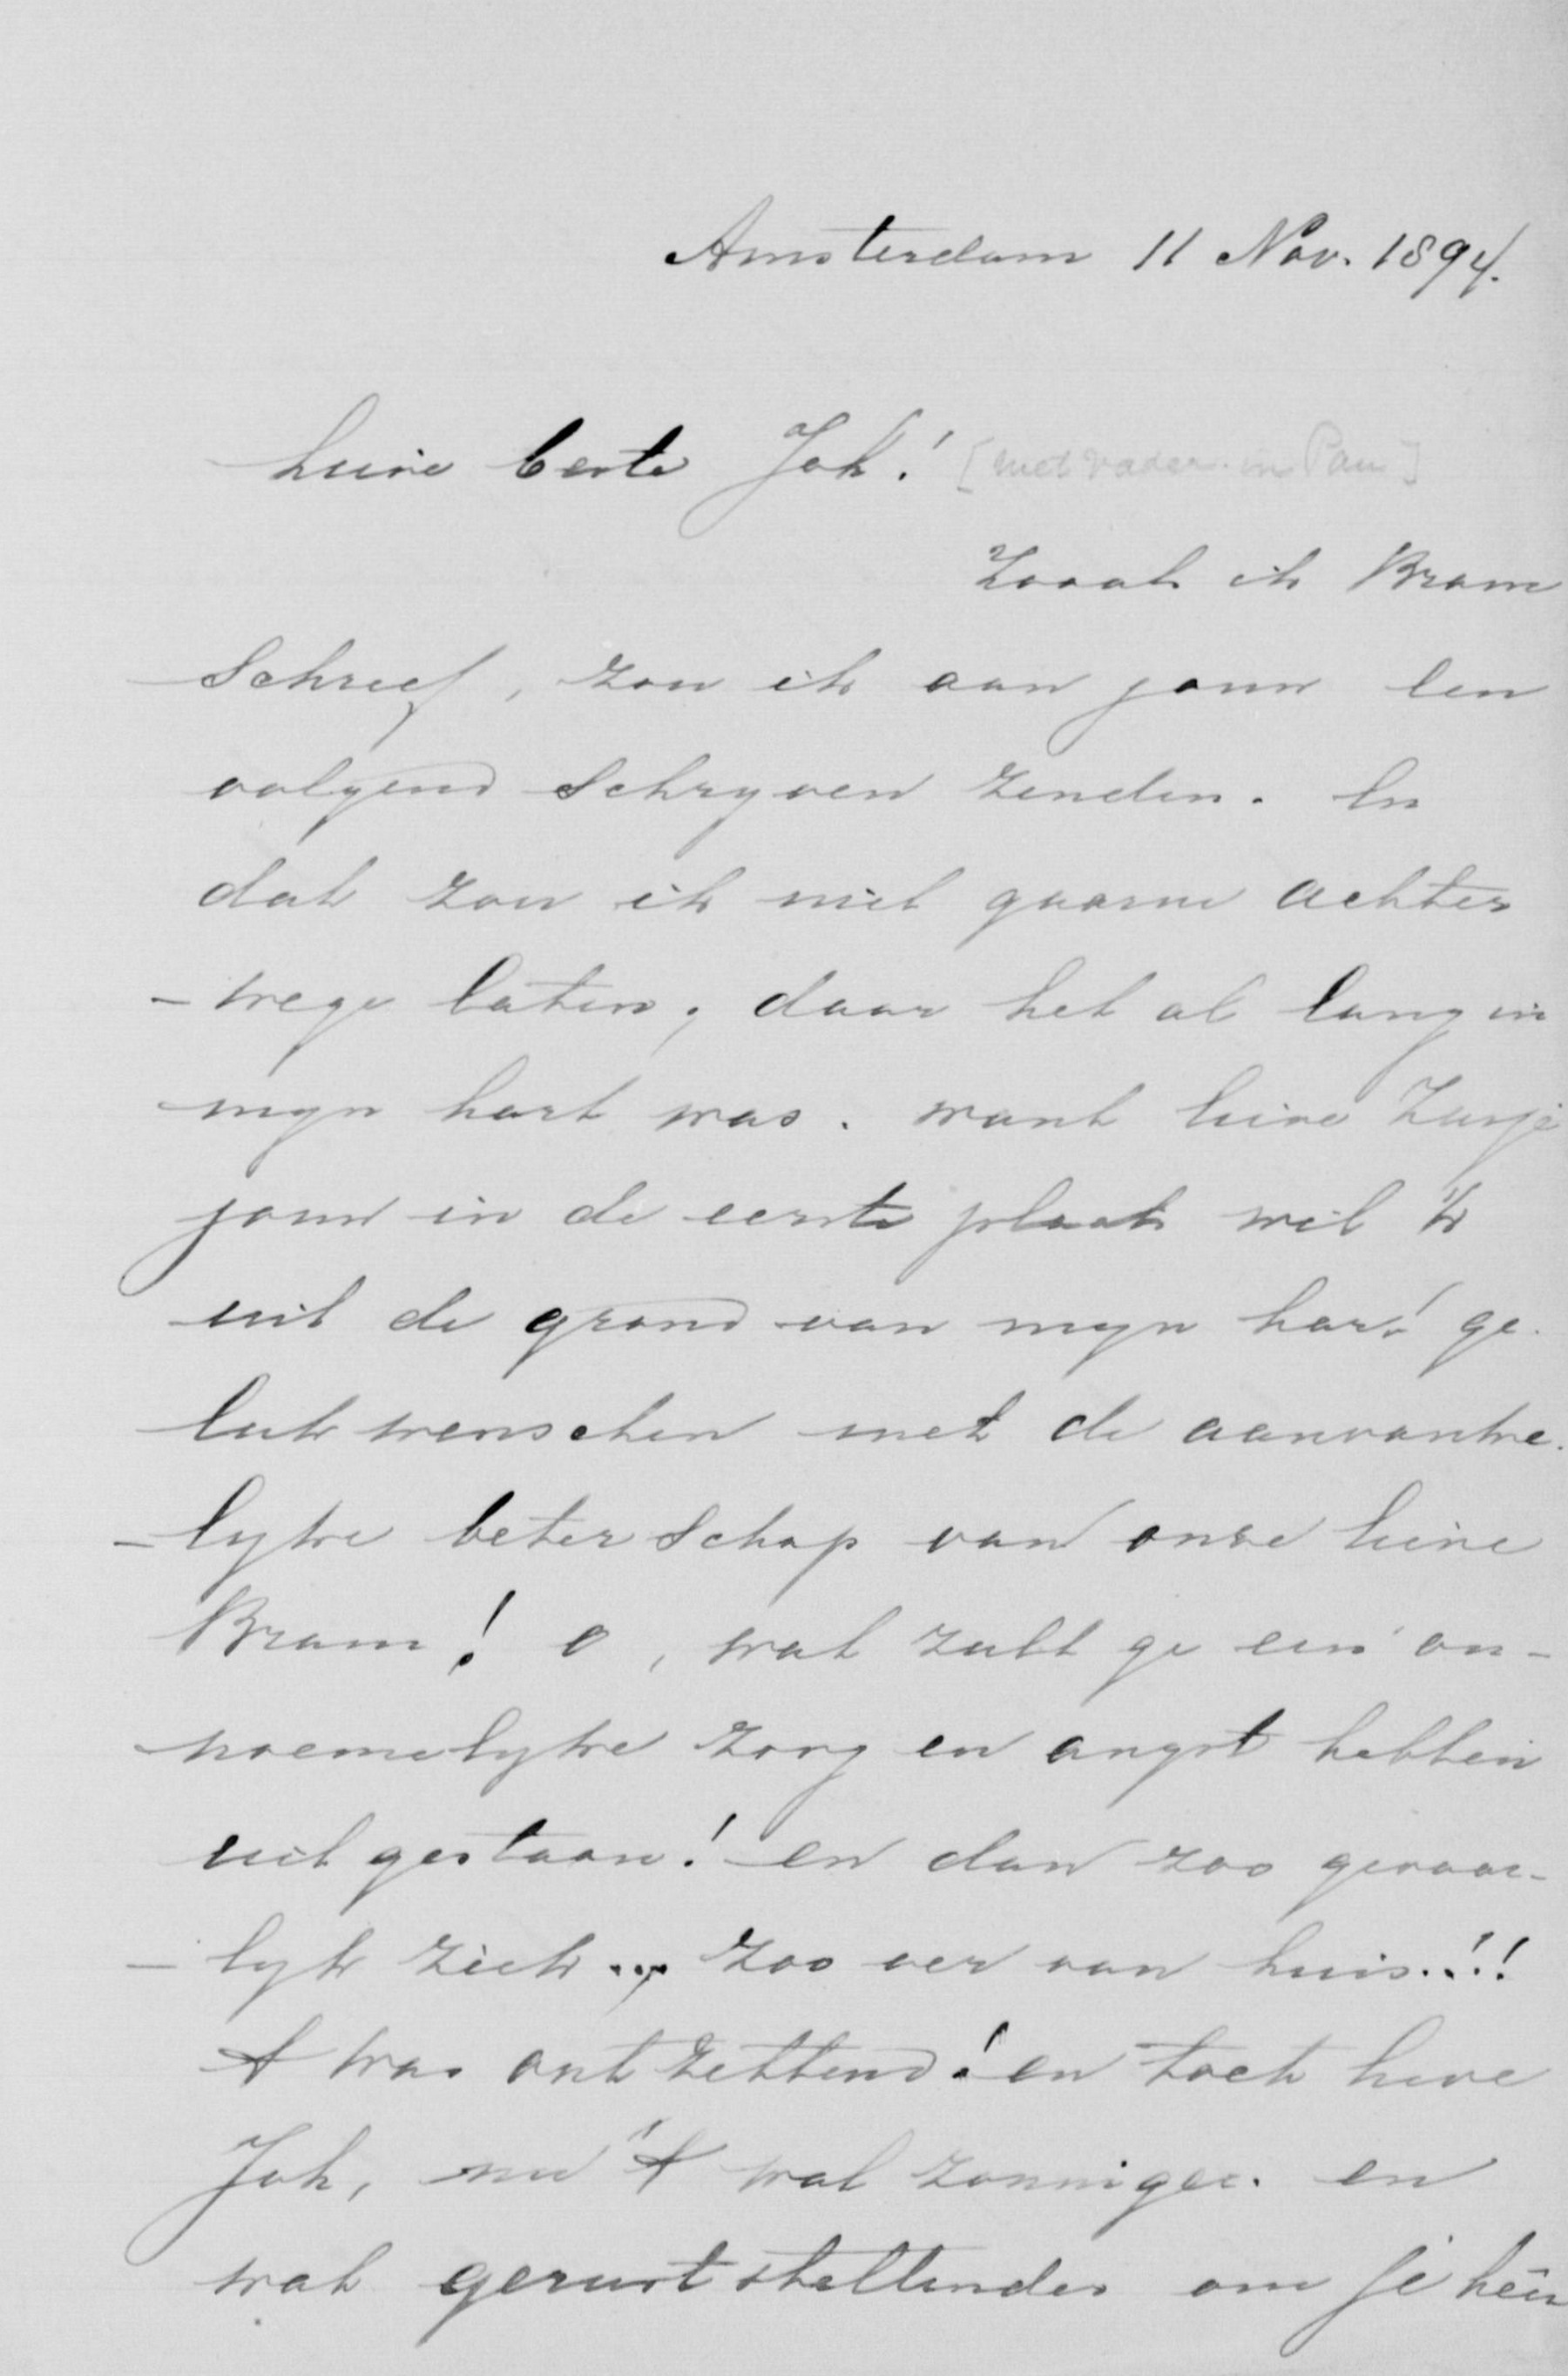 Amsterdam 11 Nov. 1894.
Lieve beste Joh! [met vader in Pau]
Zooals ik Bram
schreef, zou ik aan jouw een
volgend schryven zenden. En
dat zou ik niet gaarne achter
- wege laten, daar het al lang in
myn hart was. want lieve Zusje
jouw in de eerste plaats wil 'k
uit de grond van myn hart ge-
luk wenschen met de aanvanke-
- lyke beterschap van onze lieve
Bram! O, wat zult ge een on-
noemelyke zorg en angst hebben
uitgestaan! en dan zoo gevaar-
- lyk ziek... zoo ver van huis..!!
't was ontzettend! en toch lieve
Joh, nu 't wat zonniger en
wat geruststellender om je heen